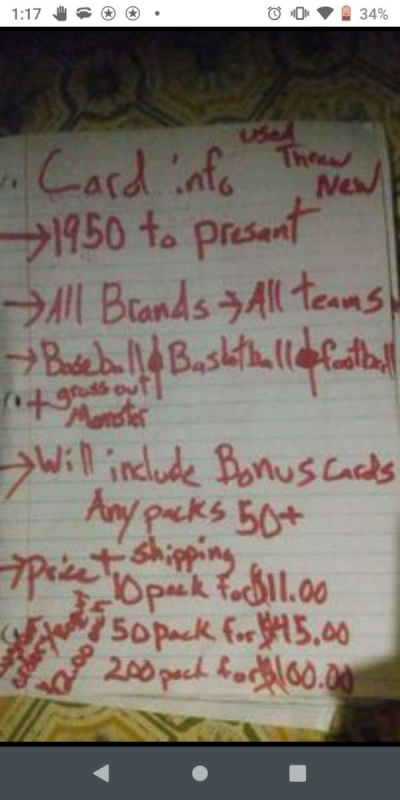 1:17 34%
used
Card info Threw
New
→1950 to present
→All Brands → All teams
→Baseball Basketball football
+ gross out
Monster
→Will include Bonus cards
Any packs 50+
→Price + shipping
10 pack for $11.00
50 pack for $45.00
200 pack for $100.00
$2.00